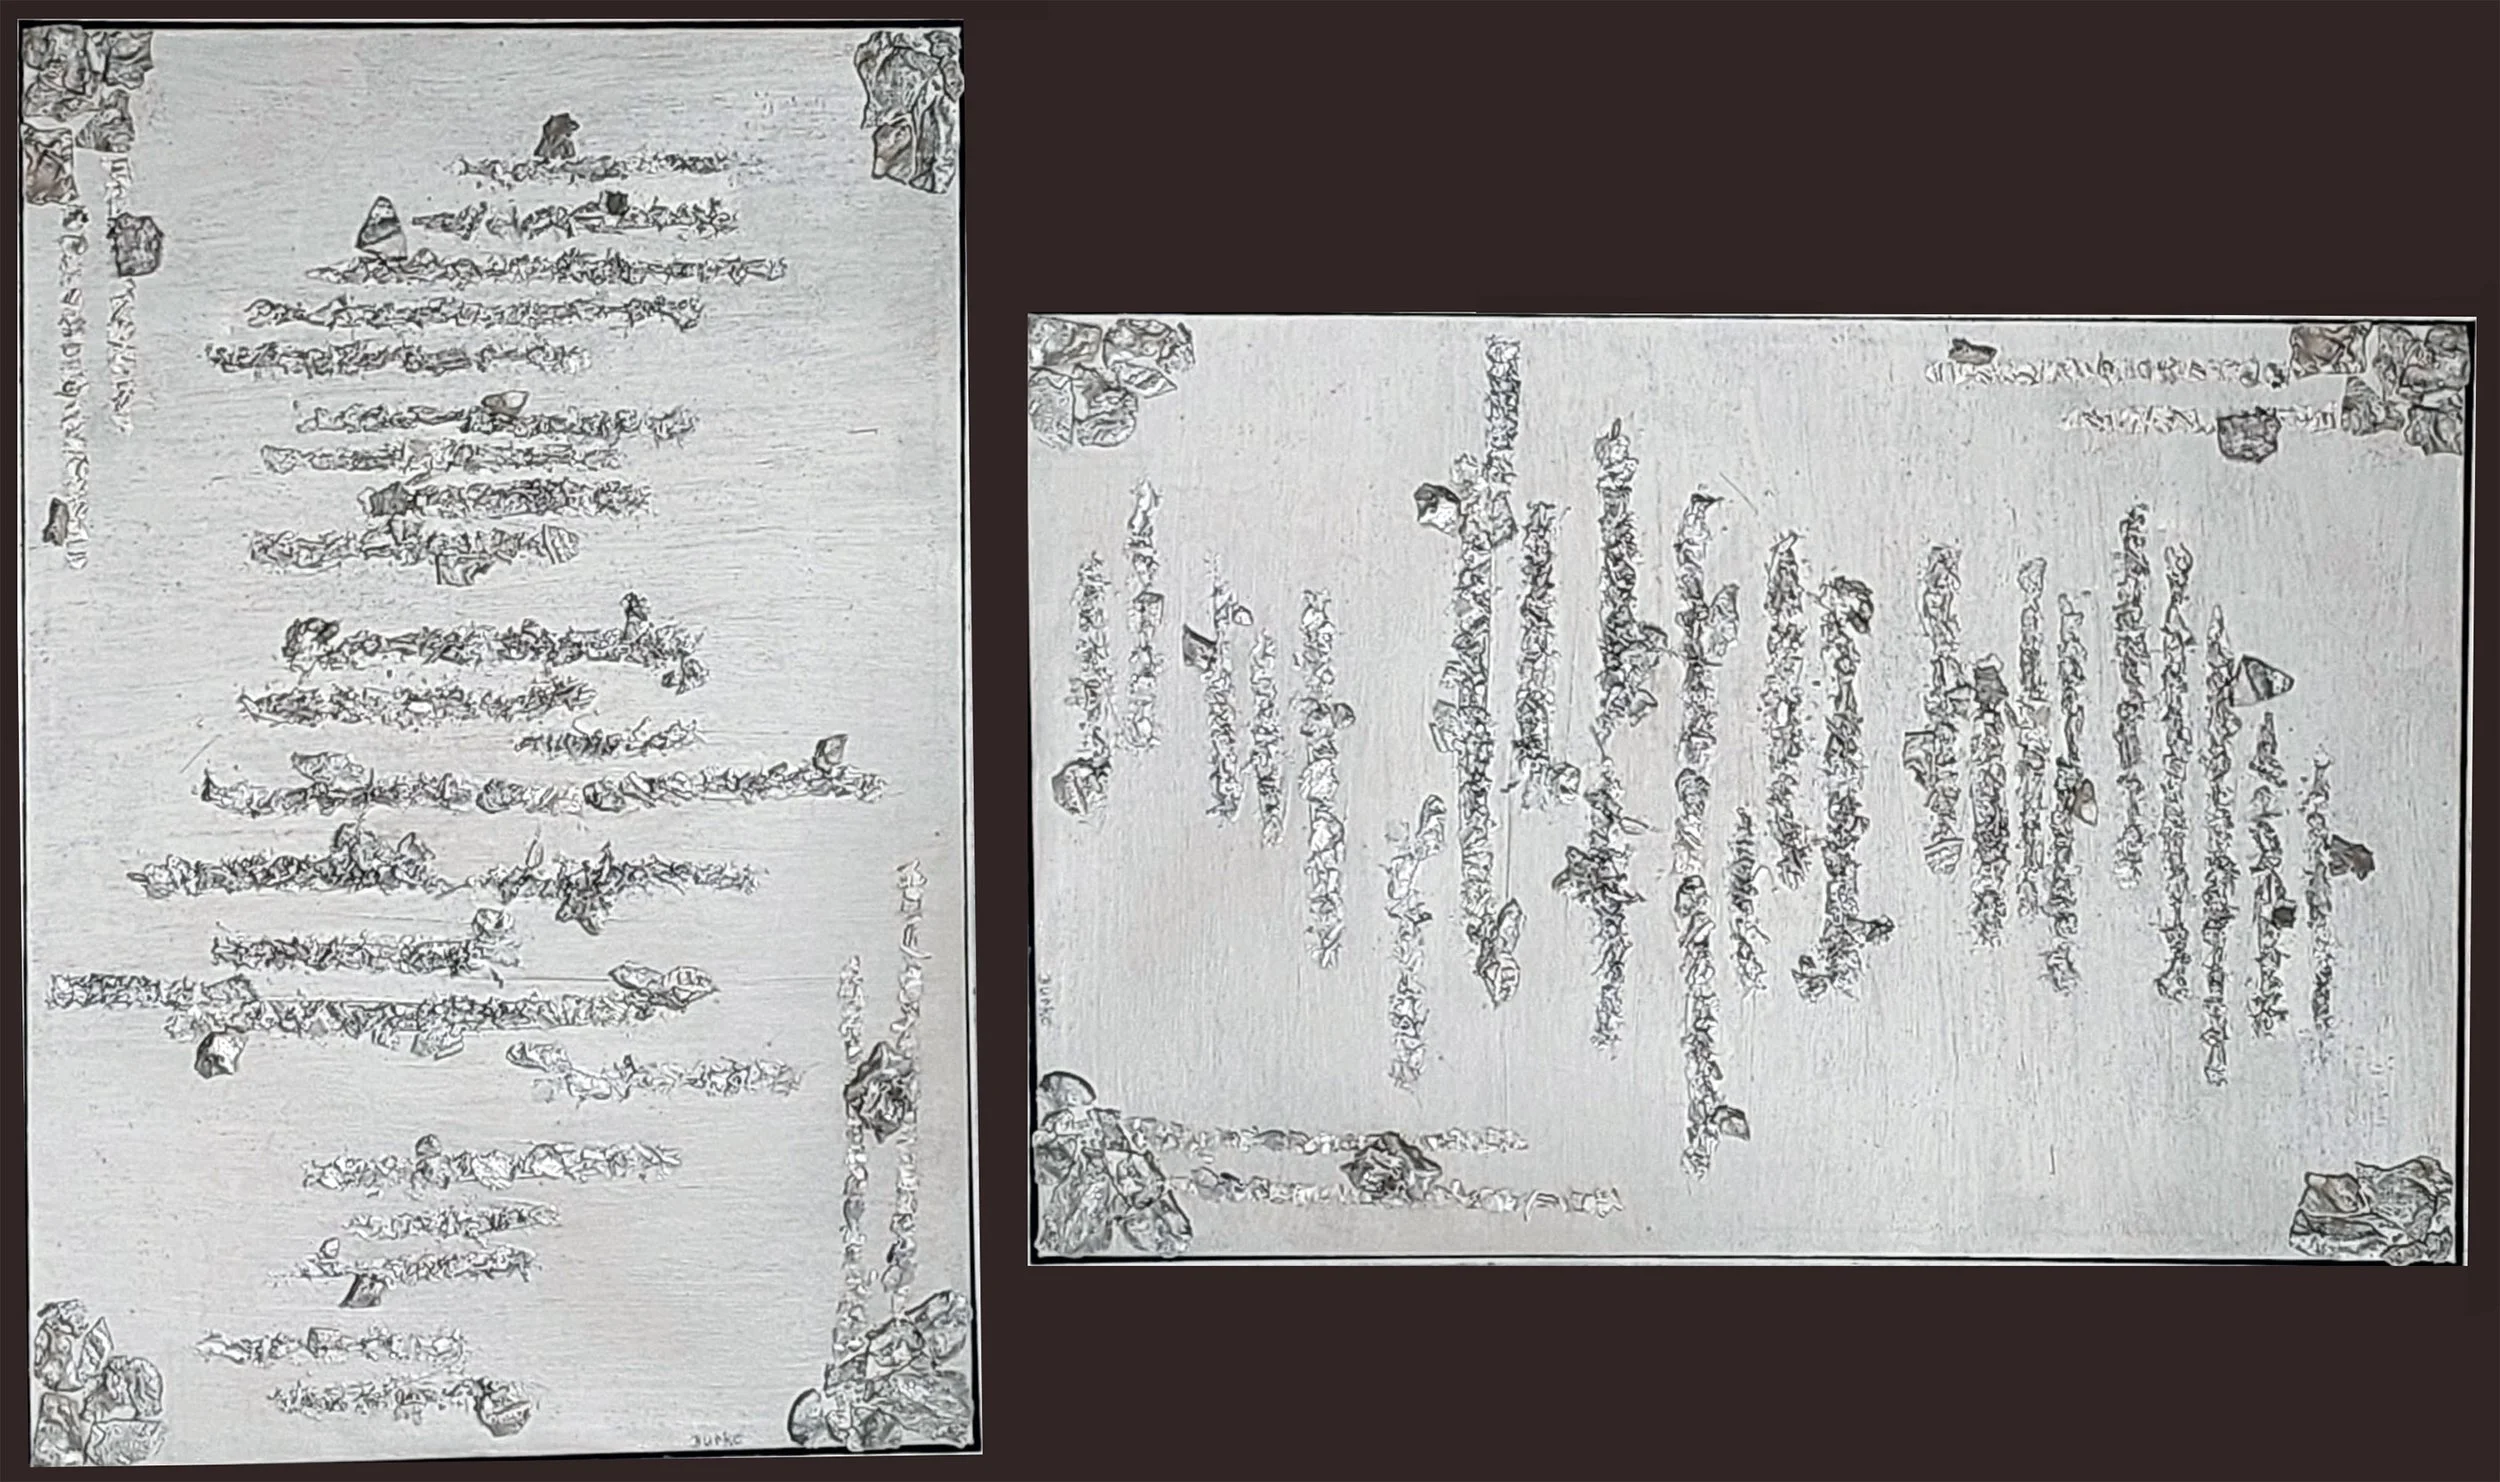 Burke
Burke